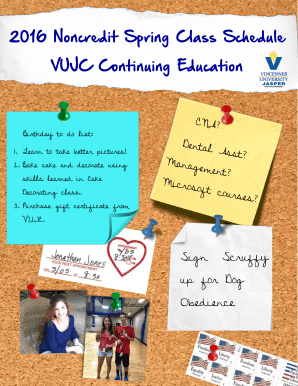 2016 Noncredit Spring Class Schedule
VUJC Continuing Education
VINCENNES
UNIVERSITY
JASPER
Birthday to do list:
1. Learn to take better pictures!
2. Bake cake and decorate using
skills learned in Cake
Decorating class.
3. Purchase gift certificate from
VUJC.
CNA?
Dental Asst?
Management?
Microsoft courses?
Jonathan Jones
YOUR NEXT APPOINTMENT
3/05 at 8:30
3/05
8:30
Sign Scruffy
up for Dog
Obedience
Liberty
Freedom
Liberty
Equality